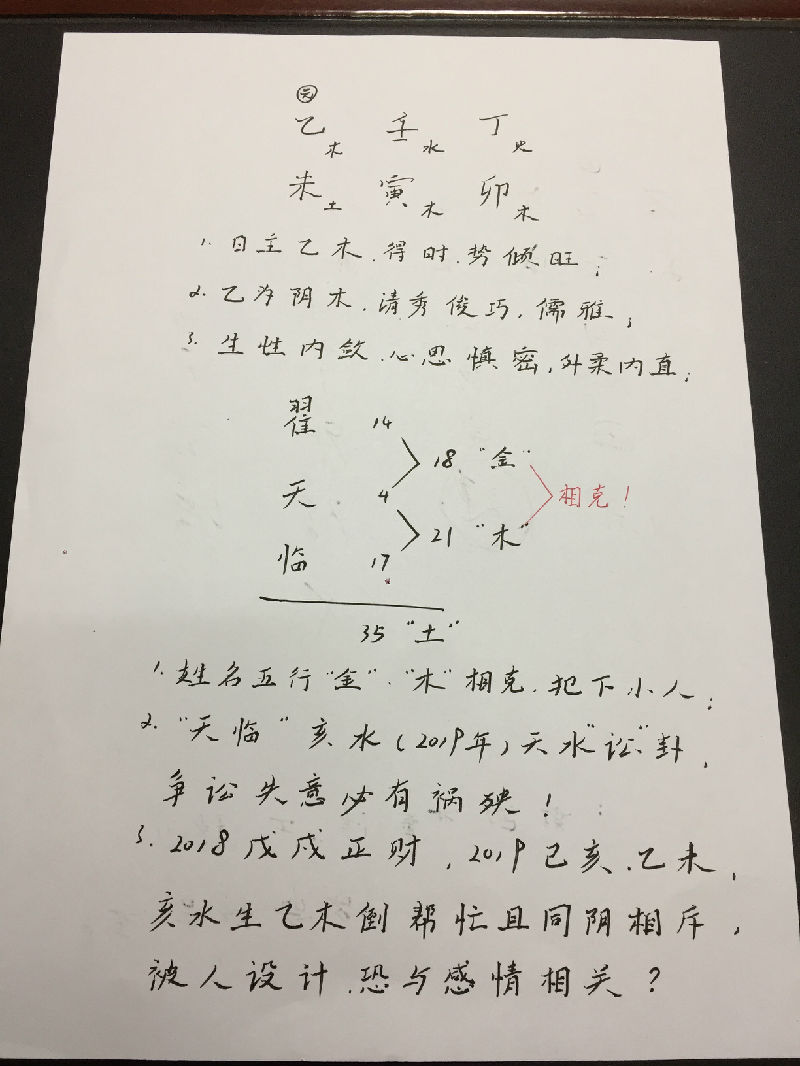 元
乙木 壬水 丁火
未土 寅木 卯木
1. 日主乙木、得时、势倾旺；
2. 乙为阴木、请秀俊巧，儒雅；
3. 生性内敛、心思慎密，外柔内直；
翟 14
18 "金"
天 4 相克！
21 "木"
临 17
35 "土"
1. 姓名五行"金"、"木"相克、犯下小人；
2. "天临"亥水（2019年）天水"讼"卦，
争讼失意必有祸殃！
3. 2018戊戌正财，2019己亥、乙未，
亥水生乙木倒帮忙且同阴相斥，
被人设计、恐与感情相关？